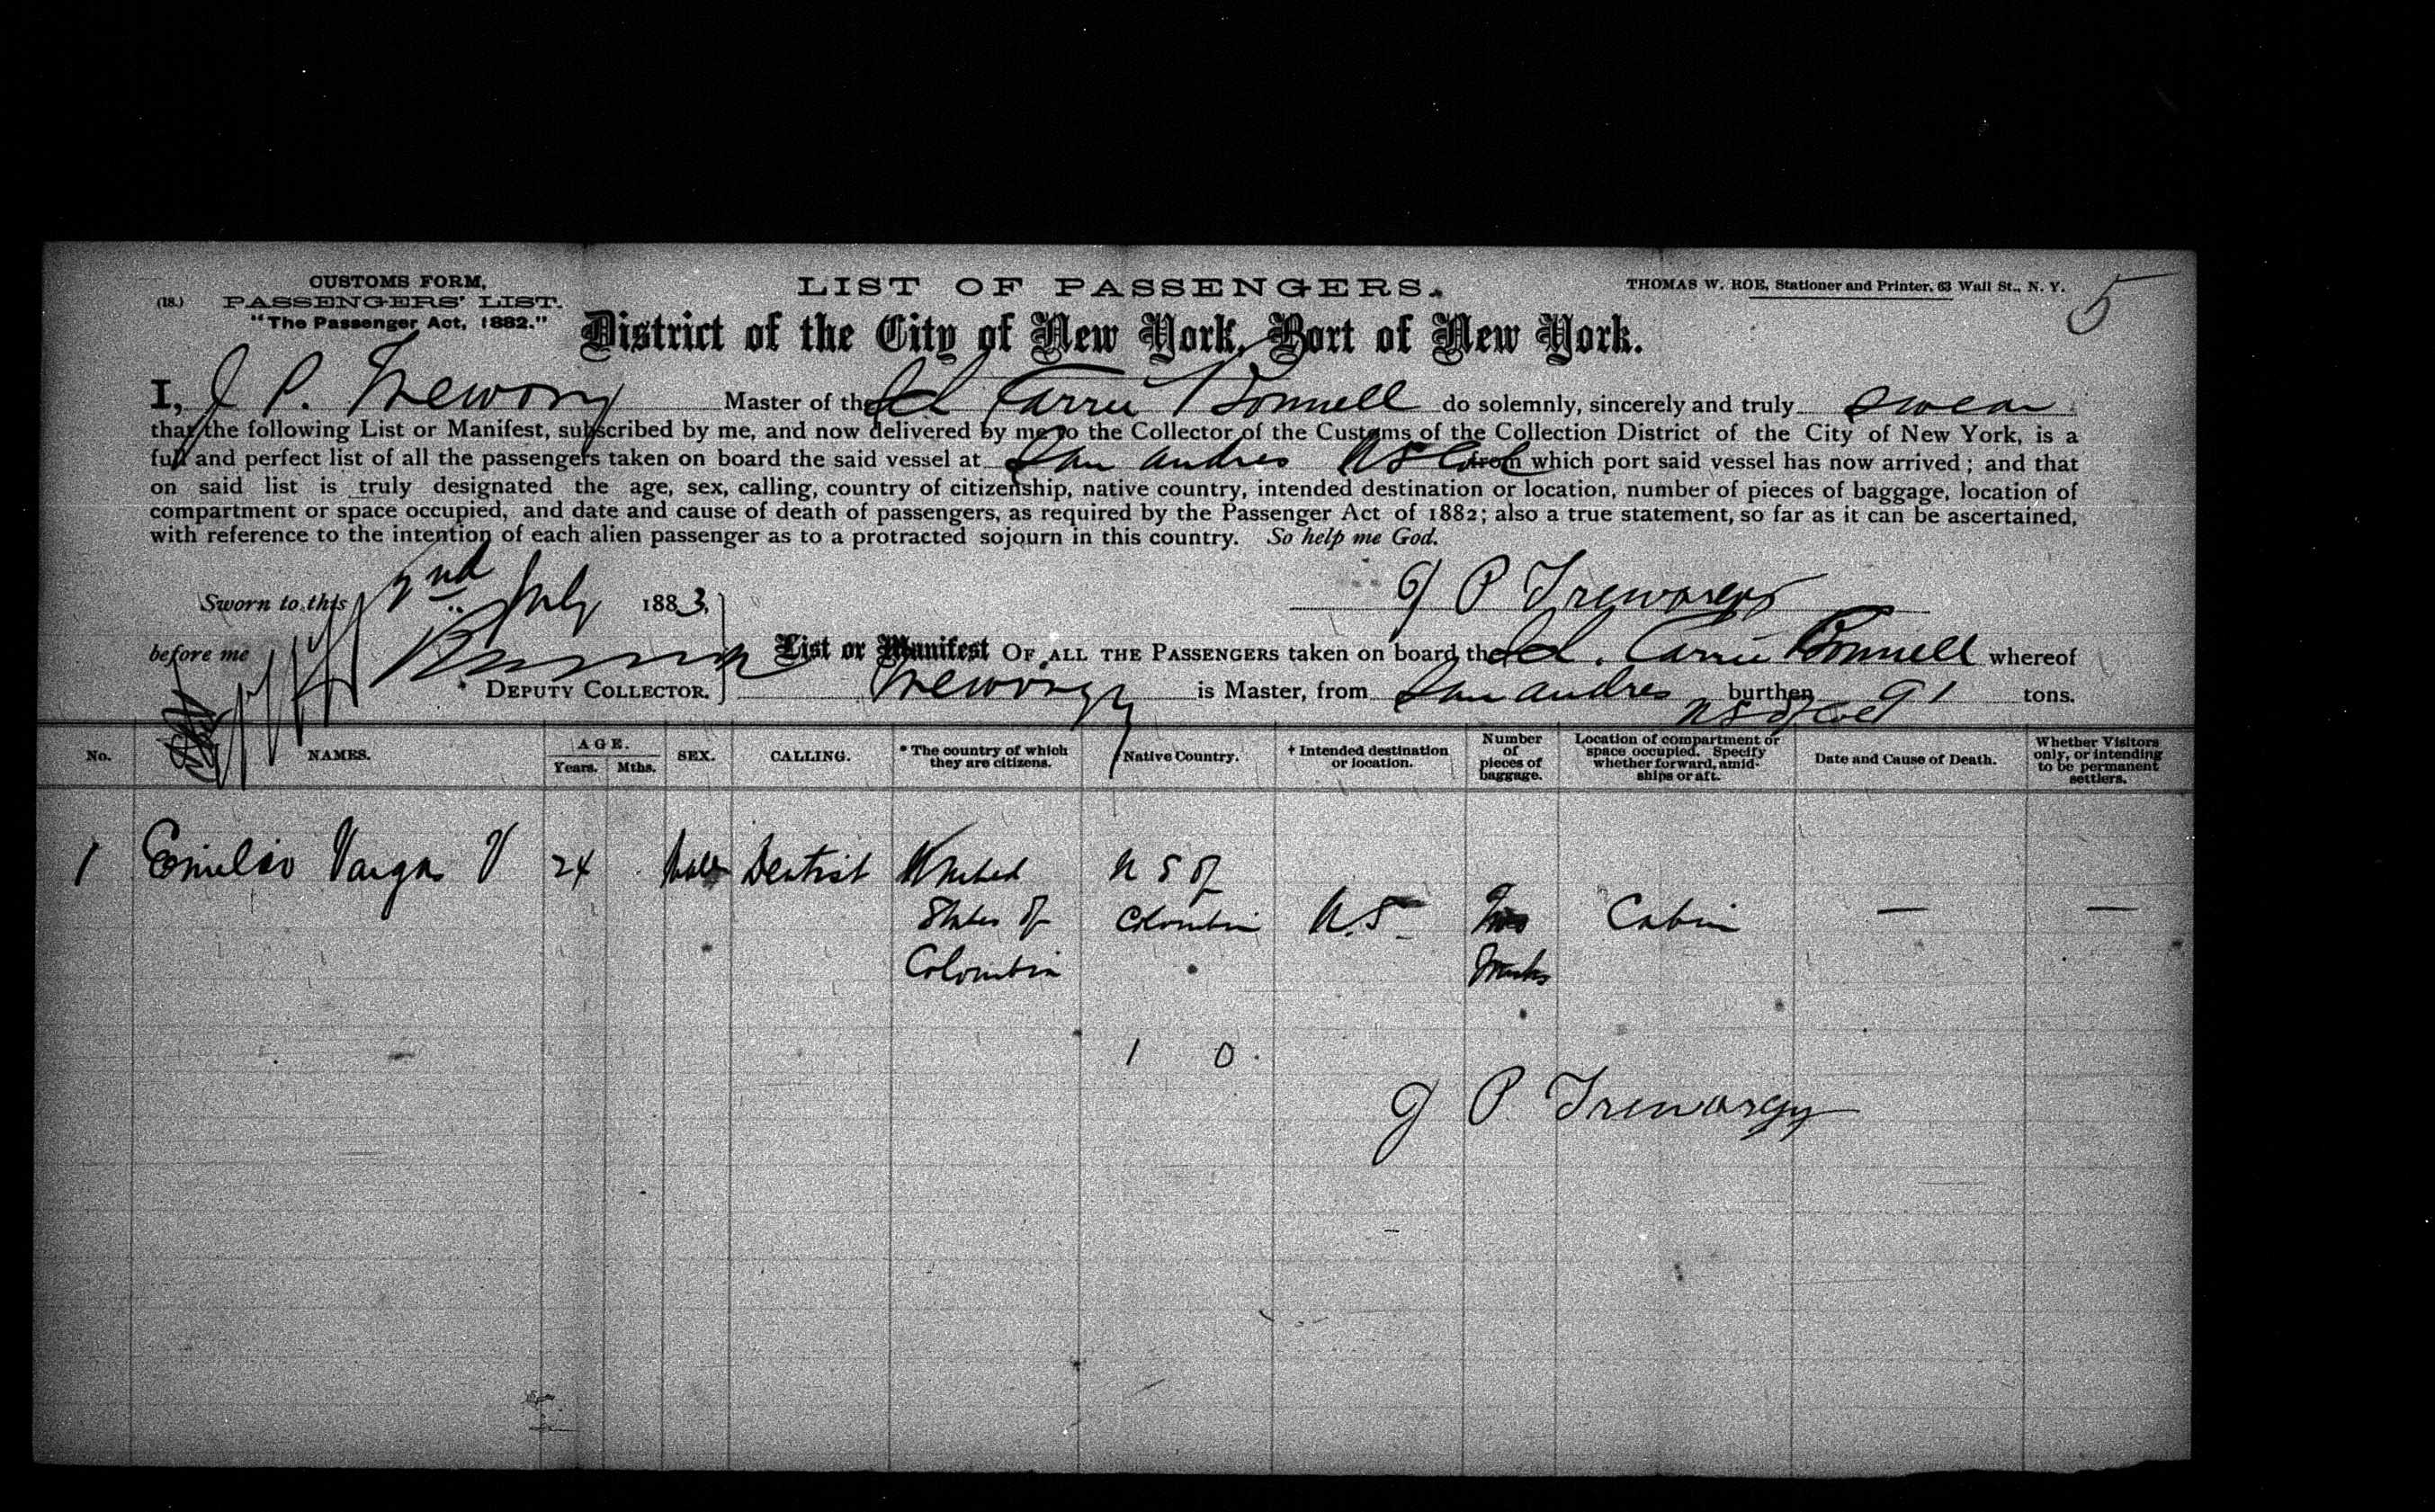 CUSTOMS FORM,
(18.) PASSENGERS' LIST.
"The Passenger Act, 1882."
LIST OF PASSENGERS.
THOMAS W. ROE, Stationer and Printer, 63 Wall St., N. Y.
5
District of the City of New York, Port of New York.
I, J P. Trewory Master of the Sch Carrie Bonnell do solemnly, sincerely and truly swear
that the following List or Manifest, subscribed by me, and now delivered by me to the Collector of the Customs of the Collection District of the City of New York, is a
full and perfect list of all the passengers taken on board the said vessel at San Andres U S Col from which port said vessel has now arrived; and that
on said list is truly designated the age, sex, calling, country of citizenship, native country, intended destination or location, number of pieces of baggage, location of
compartment or space occupied, and date and cause of death of passengers, as required by the Passenger Act of 1882; also a true statement, so far as it can be ascertained,
with reference to the intention of each alien passenger as to a protracted sojourn in this country. So help me God.
Sworn to this 2nd July 1883,
J P Treworgy
before me
DEPUTY COLLECTOR.
List or Manifest OF ALL THE PASSENGERS taken on board the Sch. Carrie Bonnell whereof
Treworgy is Master, from San Andres U S of Col burthen 91 tons.
No. NAMES. AGE. Years. Mths. SEX. CALLING. * The country of which they are citizens. Native Country. † Intended destination or location. Number of pieces of baggage. Location of compartment or space occupied. Specify whether forward, amidships or aft. Date and Cause of Death. Whether Visitors only, or intending to be permanent settlers.
1 Emilio Vargas V 24 Male Dentist United U S of
States of Colombia U.S Two Cabin — —
Colombia Trunks
1 0
J P Treworgy